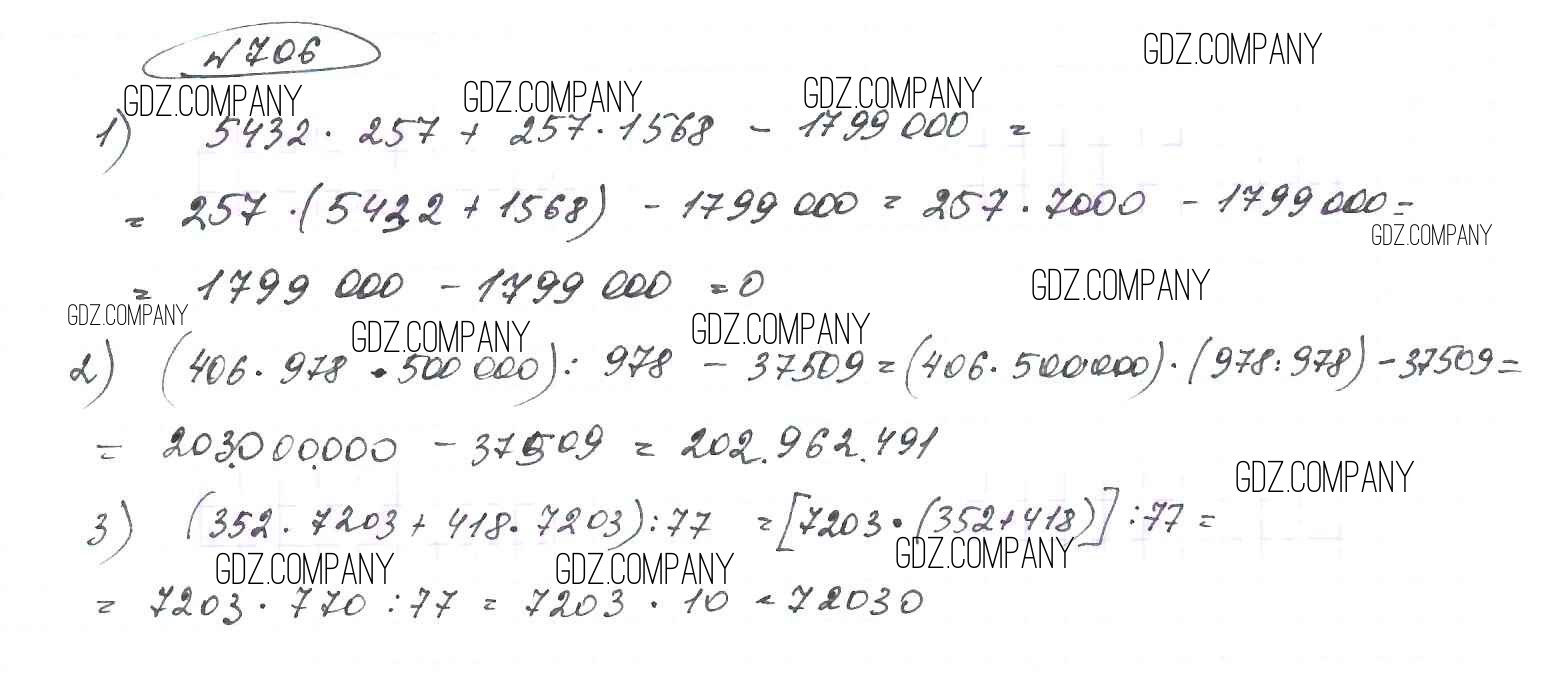 № 706
GDZ.COMPANY
GDZ.COMPANY GDZ.COMPANY GDZ.COMPANY
1) 5432 · 257 + 257 · 1568 - 1799 000 =
= 257 · (5432 + 1568) - 1799 000 = 257 · 7000 - 1799 000 =
GDZ.COMPANY
= 1799 000 - 1799 000 = 0
GDZ.COMPANY
GDZ.COMPANY GDZ.COMPANY GDZ.COMPANY
2) (406 · 978 · 500 000) : 978 - 37509 = (406 · 500000) · (978 : 978) - 37509 =
= 203.000.000 - 37509 = 202.962.491
GDZ.COMPANY
3) (352 · 7203 + 418 · 7203) : 77 = [7203 · (352+418)] : 77 =
GDZ.COMPANY GDZ.COMPANY GDZ.COMPANY
= 7203 · 770 : 77 = 7203 · 10 = 72030